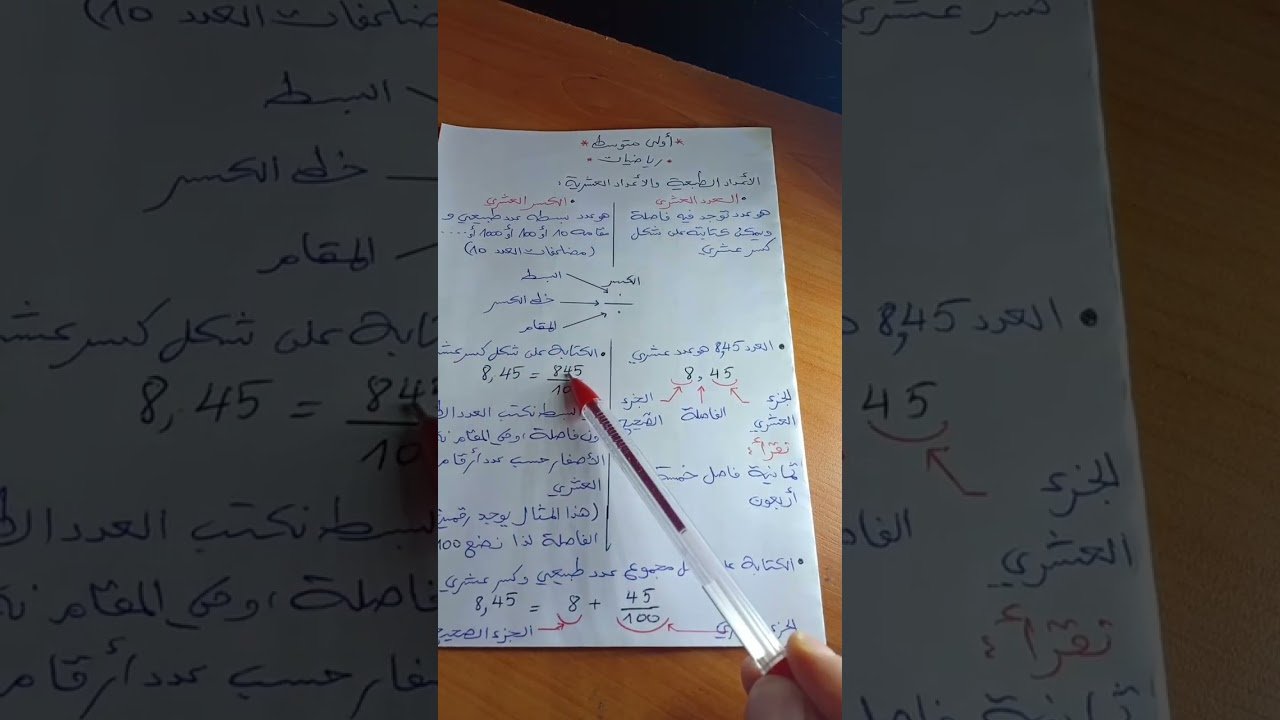 *أولى متوسط*
• رياضيات •
الأعداد الطبيعية والأعداد العشرية :
• العدد العشري
هو عدد توجد فيه فاصلة
ويمكن كتابته على شكل
كسر عشري
• الكسر العشري
هو عدد بسطه عدد طبيعي و
مقامه 10 أو 100 أو 1000 أو ....
(مضاعفات العدد 10)
الكسر
البسط
خط الكسر
المقام
• العدد 8,45 هو عدد عشري
8,45
الجزء
العشري
الفاصلة
الجزء
الصحيح
تقرأ:
ثمانية فاصل خمسة
أربعون
• الكتابة على شكل كسر
8,45 = 845
البسط نكتب العدد
فاصلة، وفي المقام
الأصفار حسب عدد أرقام
العشري
(هذا المثال يوجد
الفاصلة لذا نضع 100
• الكتابة مجموع عدد طبيعي وكسر عشري
8,45 = 8 + 45/100
الجزء
الجزء الصحيح